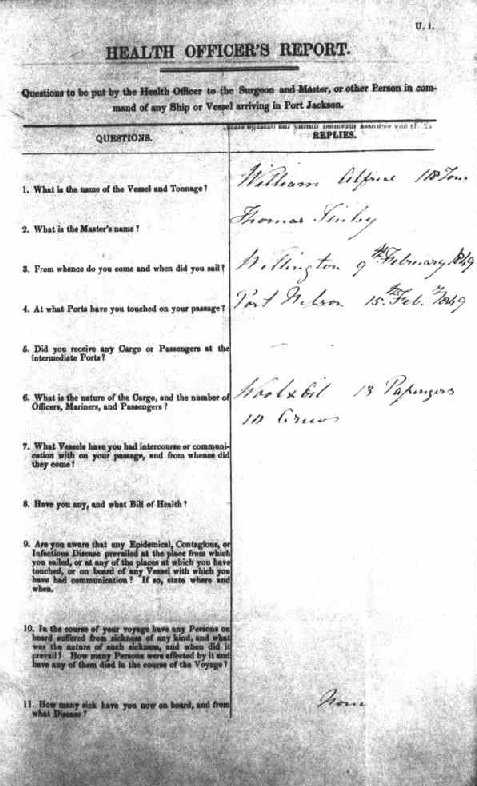 U. 1.
HEALTH OFFICER'S REPORT.
Questions to be put by the Health Officer to the Surgeon and Master, or other Person in com-
mand of any Ship or Vessel arriving in Port Jackson.
QUESTIONS.
REPLIES.
1. What is the name of the Vessel and Tonnage?
William Alfred
2. What is the Master's name?
Thomas
3. From whence do you come and when did you sail?
Wellington 9th February 1849
4. At what Ports have you touched on your passage?
Port Nelson 15th Feb. 1849
5. Did you receive any Cargo or Passengers at the
intermediate Ports?
6. What is the nature of the Cargo, and the number of
Officers, Mariners, and Passengers?
Wool & Oil 13 Passengers
Crew
7. What Vessels have you had intercourse or communi-
cation with on your passage, and from whence did
they come?
8. Have you any, and what Bill of Health?
9. Are you aware that any Epidemical, Contagious, or
Infectious Disease prevailed at the place from which
you sailed, or at any of the places at which you have
touched, or on board of any Vessel with which you
have had communication? If so, state where and
when.
10. In the course of your voyage have any Persons on
board suffered from sickness of any kind, and what
was the nature of such sickness, and when did it
prevail? How many Persons were affected by it and
have any of them died in the course of the Voyage?
11. How many sick have you now on board, and from
what Disease?
None